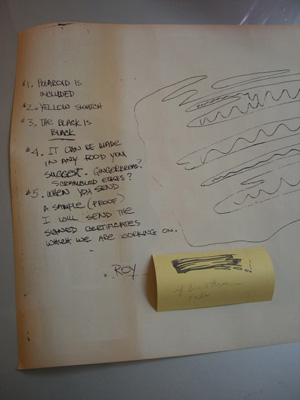 #1. POLAROID IS
INCLUDED
#2. YELLOW SWATCH
#3. THE BLACK IS
BLACK
#4. IT CAN BE MADE
IN ANY FOOD YOU
SUGGEST. GINGERBREAD?
SCRAMBLED EGGS?
#5. WHEN YOU SEND
A SAMPLE (PROOF)
I WILL SEND THE
SIGNED CERTIFICATES
WHICH WE ARE WORKING ON.
ROY